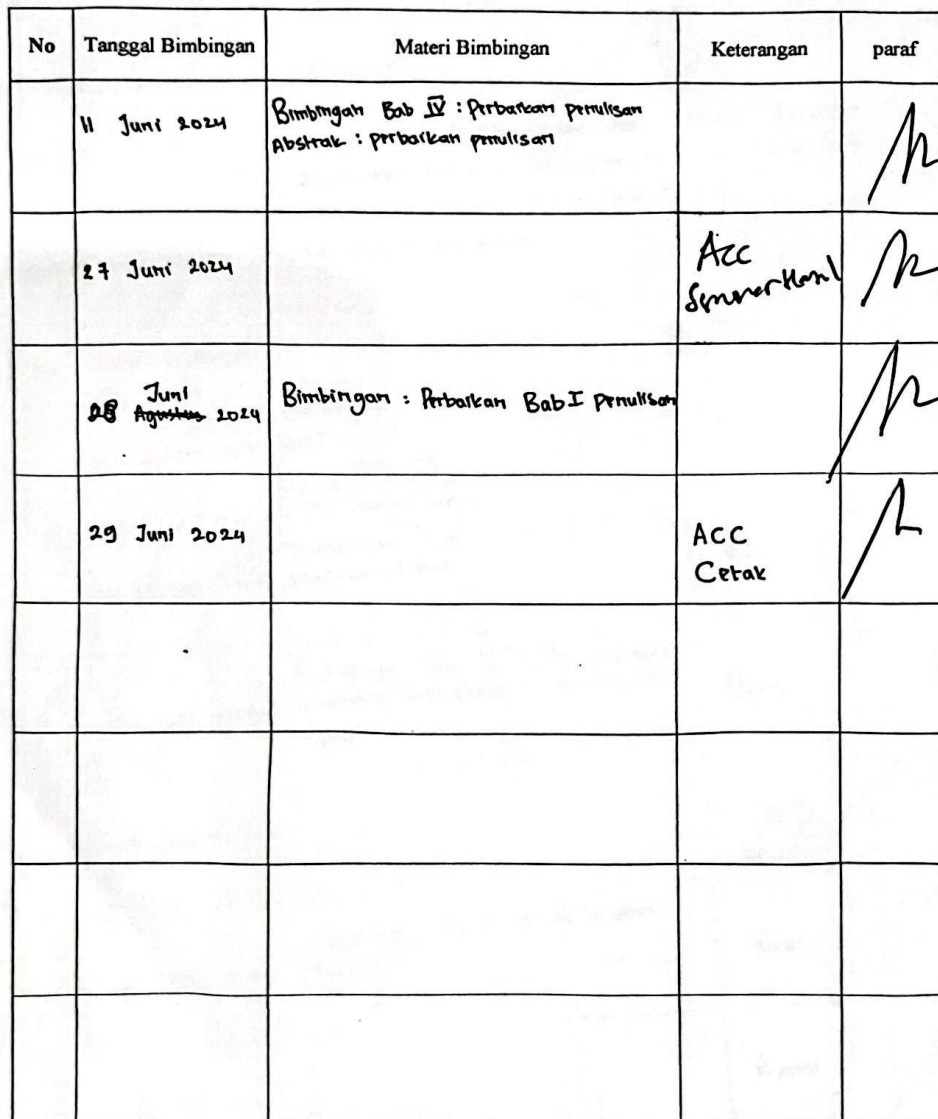 No Tanggal Bimbingan Materi Bimbingan Keterangan paraf
11 Juni 2024 Bimbingan Bab IV : Perbaikan penulisan
Abstrak : perbaikan penulisan
27 Juni 2024 Acc
Seminar Hasil
Juni
28 Agustus 2024 Bimbingan : Perbaikan Bab I penulisan
29 Juni 2024 ACC
Cetak